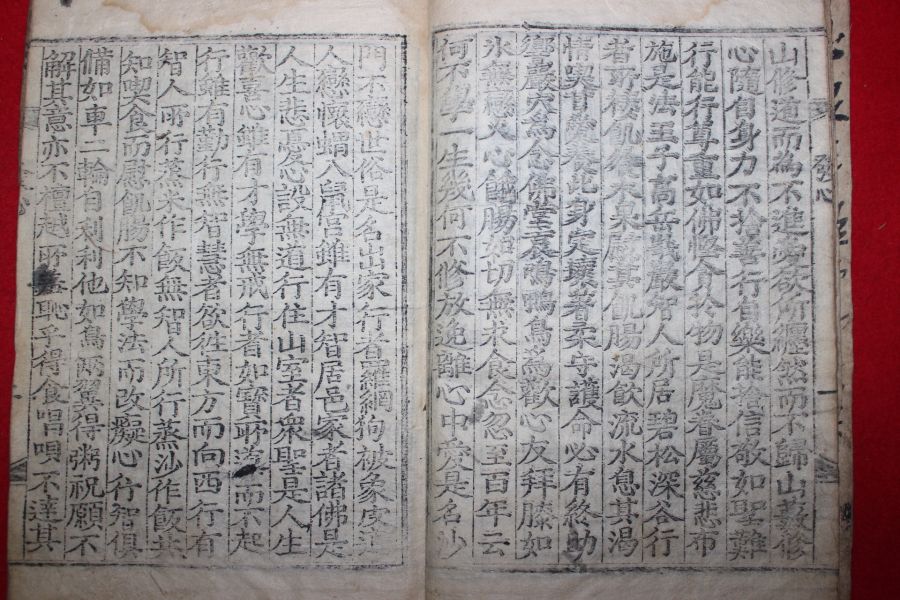 山修道而為不進愛欲所纏然而不歸山藪修
心隨自身力不捨善行自樂能捨信敬如聖難
行能行尊重如佛慳貪於物是魔眷屬慈悲布
施是法王子高岳峩巖智人所居碧松深谷行
者所捿飢飡木果慰其飢腸渴飲流水息其渴
情喫甘愛養此身定壞著柔守護命必有終助
響巖穴為念佛堂哀鳴鴨鳥為歡心友拜膝如
氷無戀火心餓腸如切無求食念忽至百年云
何不學一生幾何不修放逸離心中愛是名沙
門不戀世俗是名出家行者羅網狗被象皮道
人戀懷蝟入鼠宮雖有才智居邑家者諸佛是
人生悲憂心設無道行住山室者衆聖是人生
歡喜心雖有才學無戒行者如寶所導而不起
行雖有勤行無智慧者欲往東方而向西行有
智人所行蒸米作飯無智人所行蒸沙作飯共
知喫食而慰飢腸不知學法而改癡心行智俱
備如車二輪自利利他如鳥兩翼得粥祝願不
解其意亦不檀越所羞恥乎得食唱唄不達其